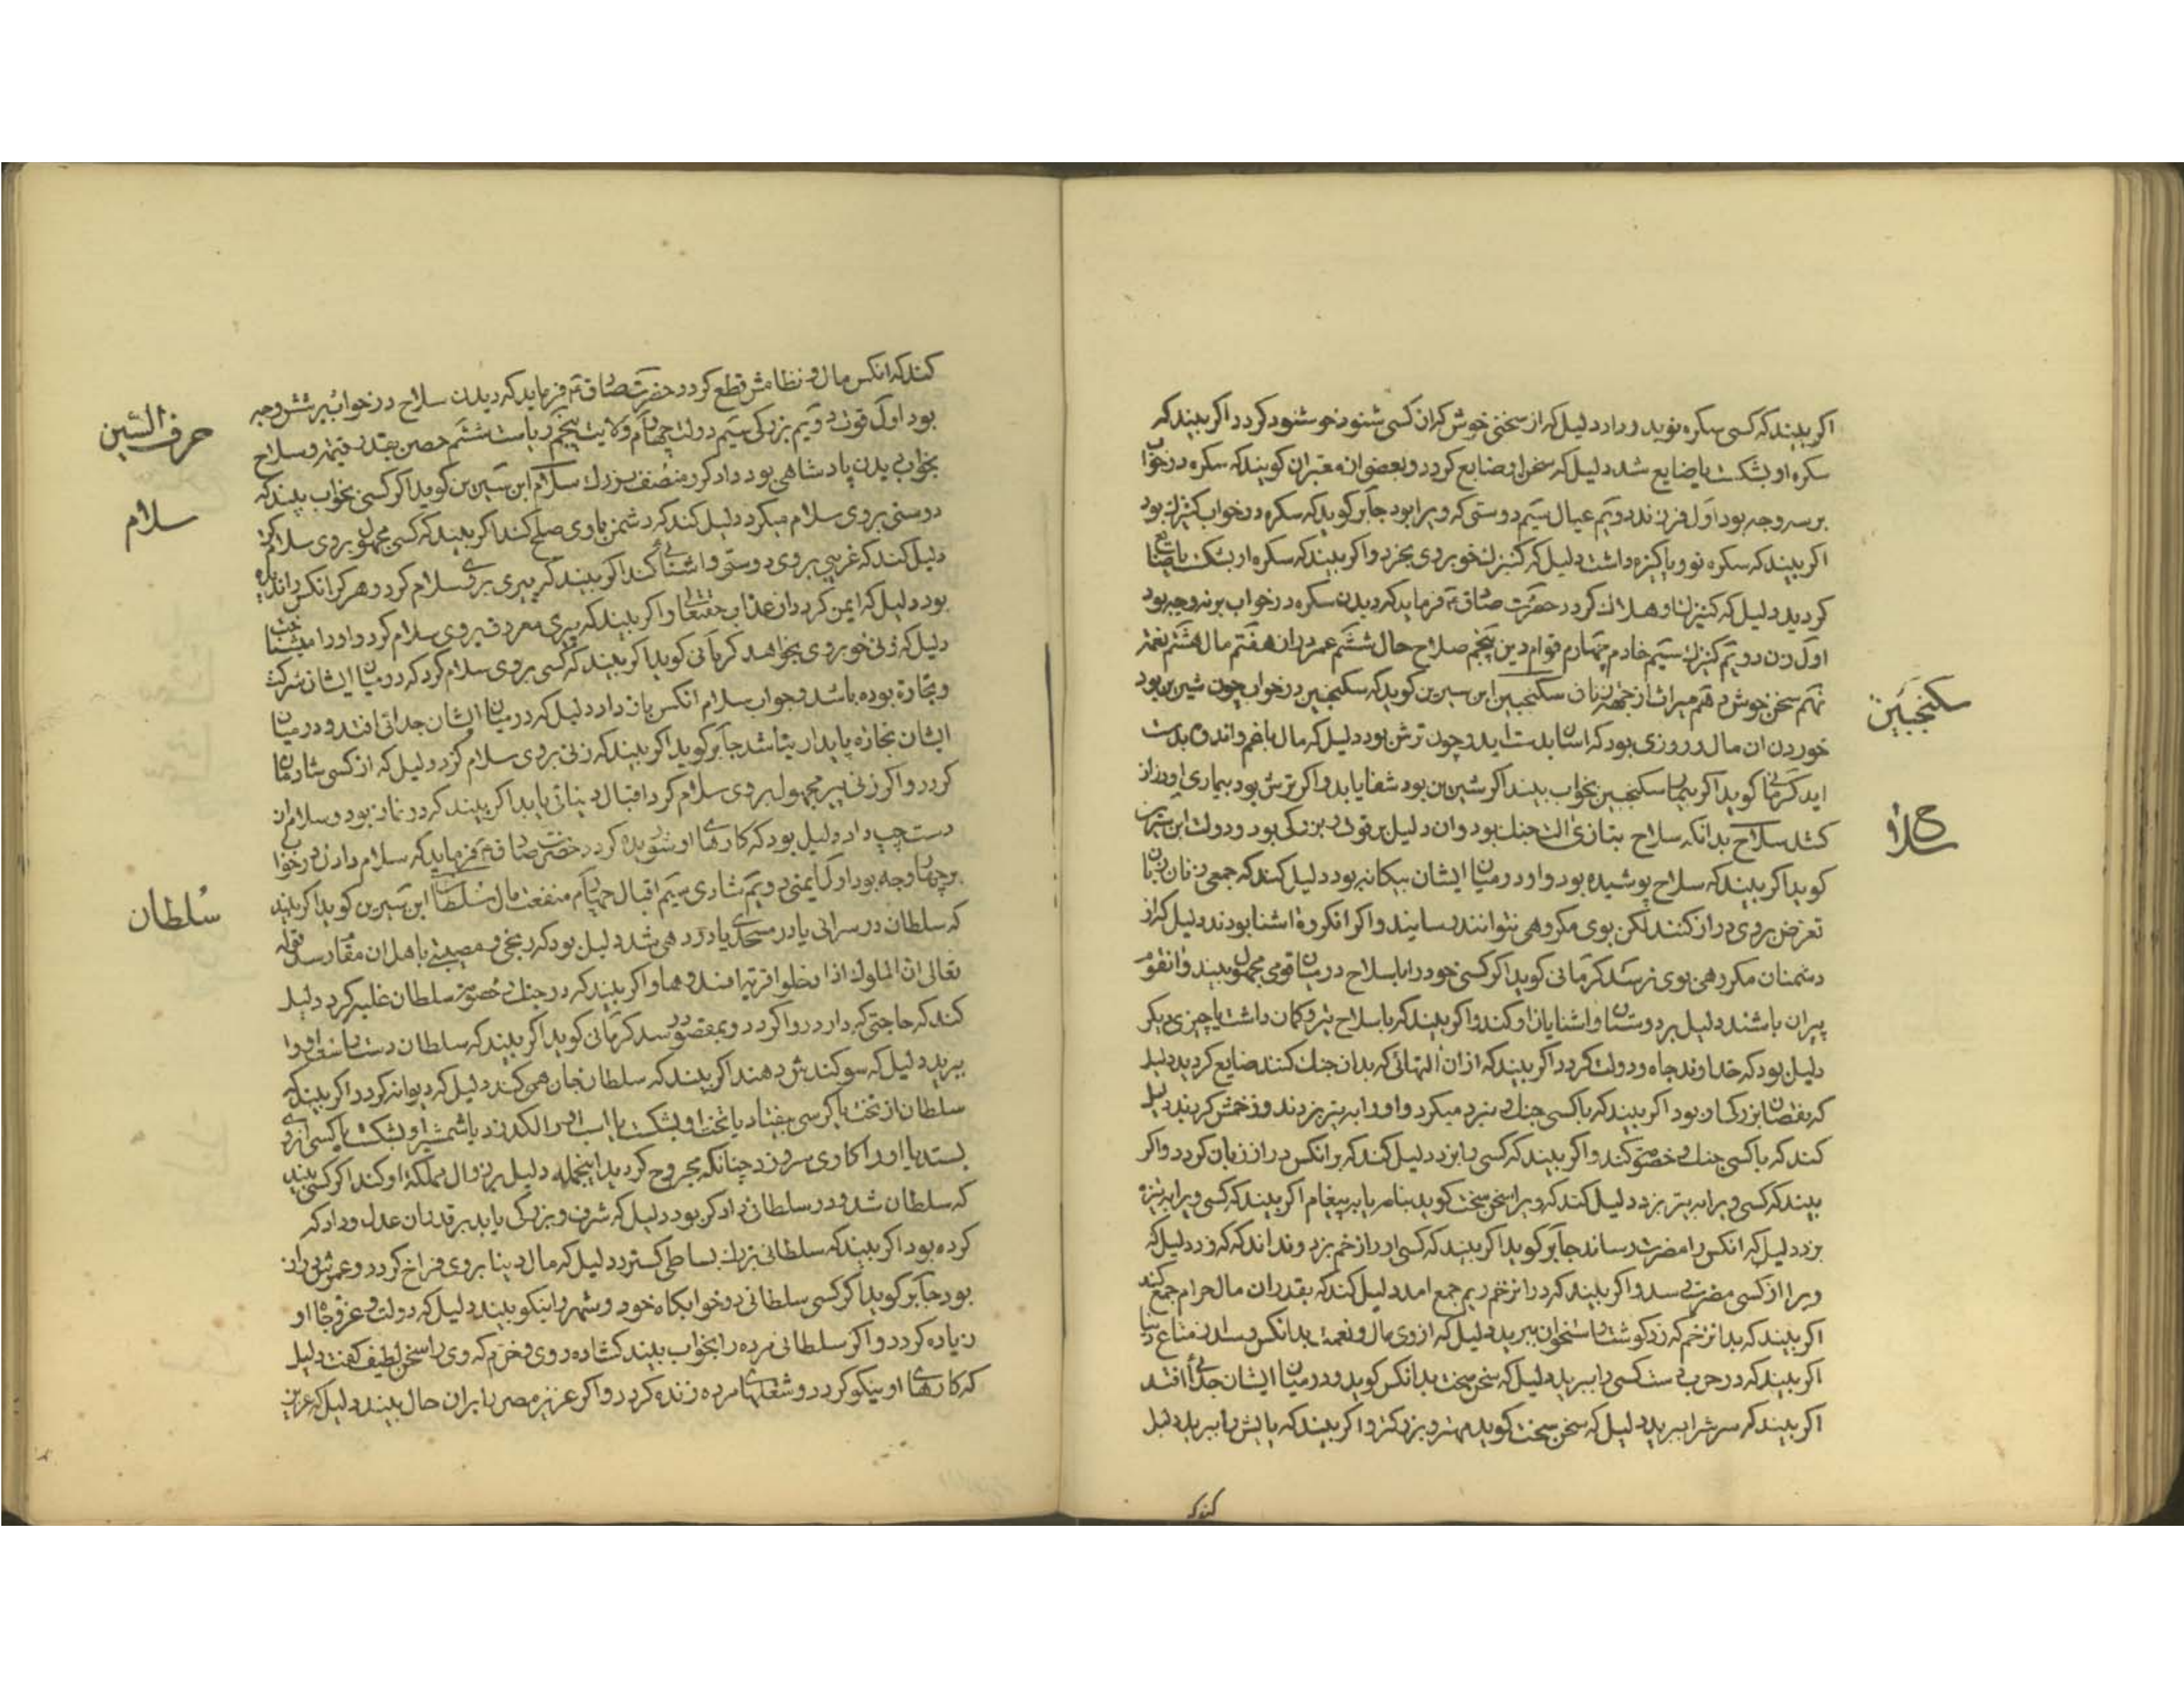 اکر بیند که کسی سکره نو بدو داد دلیل که از سخنی خوش که از کسی شنود خوشنود کردد اکر بیند که
سکره او بشکست یا ضایع شد دلیل که سخن او ضایع کردد و بعضی از معبران کویند که سکره در خواب
بر سه وجه بود اول فرزند دویم عیال سیم دوستی که ویرا بود جابر کوید که سکره در خواب کنیزک بود
اکر بیند که سکره نو و پاکیزه داشت دلیل که کنیزک خوبروی بخرد و اکر بیند که سکره او بشکست یا ضایع
کردید دلیل که کنیزک او هلاک کردد حضرت صادق ع فرماید که دیدن سکره در خواب بر نه وجه بود
اول زن دویم کنیزک سیم خادم چهارم قوام دین پنجم صلاح حال ششم عمر دراز هفتم مال هشتم نعمت
نهم سخن خوش دهم میراث از جهت زنان سکنجبین ابن سیرین کوید که سکنجبین در خواب چون شیرین بود
خوردن ان مال و روزی بود که اسان بدست اید و چون ترش بود دلیل که مال با غم و اندوه بدست
اید کرمانی کوید اکر بیمار سکنجبین بخواب بیند اکر شیرین بود شفا یابد و اکر ترش بود بیماری او دراز
کشد سلاح بدانکه سلاح بتازی الت جنک بود و ان دلیل بر قوت و بزرکی بود و دولت ابن سیرین
کوید اکر بیند که سلاح پوشیده بود و او در میان ایشان بیکانه بود دلیل کند که جمعی زنان زبان
تعرض بر وی دراز کنند لکن بوی مکروهی نتوانند رسانند و اکر انکروه اشنا بودند دلیل که از
دشمنان مکروهی بوی نرسد کرمانی کوید اکر کسی خود را با سلاح در میان قومی مجهول بیند و انقوم
پیران باشند دلیل بر دوستان و اشنایان او کند و اکر بیند که با سلاح تیر و کمان داشت یا چیزی دیکر
دلیل بود که خداوند جاه و دولت کردد اکر بیند که از ان التهائی که بدان جنک کنند ضایع کردید دلیل
که نقصان بزرکی او بود اکر بیند که با کسی جنک و نبرد میکرد و او را به تیر بزدند و زخمش کردند دلیل
کند که با کسی جنک و خصومت کند و اکر بیند که کسی را بزد دلیل کند که بر انکس دراز زبان کردد و اکر
بیند که کسی ویرا به تیر بزد دلیل کند که ویرا سخن سخت کوید بنامه یا به پیغام اکر بیند که کسی ویرا به نیزه
بزد دلیل که انکس را مضرت رساند جابر کوید اکر بیند که کسی او را زخم بزد و نداند که که زد دلیل که
ویرا از کسی مضرت رسد و اکر بیند که در انزخم ریم جمع امد دلیل کند که بقدر ان مال حرام جمع کند
اکر بیند که بدانزخم که زد کوشت و استخوان ببرید دلیل که از وی مال و نعمت بدانکس رسد از متاع دنیا
اکر بیند که در حرب دست کسی را ببرید دلیل که سخن سخت بدانکس کوید و در میان ایشان جدائی افتد
اکر بیند که سرش را ببرید دلیل که سخن سخت کوید مهتر و بزرکتر و اکر بیند که پایش را ببرید دلیل
کند که
سکنجبین
سلاح
کند که انکس مال و نظامش قطع کردد حضرت صادق ع فرماید که دیدن سلاح در خواب بر شش وجه
بود اول قوت دویم بزرکی سیم دولت چهارم ولایت پنجم ریاست ششم حصن بقدر قیمت و سلاح
بخواب دیدن پادشاهی بود دادکر و منصف بزرک سلام ابن سیرین کوید اکر کسی بخواب بیند که
دوستی بر وی سلام میکرد دلیل کند که دشمن با وی صلح کند اکر بیند که کسی مجهول بر وی سلام کرد
دلیل کند که غریبی بر وی دوستی و اشنائی کند اکر بیند که پیری بر وی سلام کرد و هرکز انکس را ندیده
بود دلیل که ایمن کردد از عذاب حقتعالی و اکر بیند که پیری معروف بر وی سلام کرد و او را میشناخت
دلیل که زنی خوبروی بخواهد کرمانی کوید اکر بیند که کسی بر وی سلام کرد که در میان ایشان شرکت
و تجارة بوده باشد و جواب سلام انکس باز داد دلیل که در میان ایشان جدائی افتد و در میان
ایشان تجارة پایدار نباشد جابر کوید اکر بیند که زنی بر وی سلام کرد دلیل که از کسی شادمان
کردد و اکر زنی پیر مجهوله بر وی سلام کرد اقبال دنیائی یابد اکر بیند که در نماز بود و سلام از
دست چپ داد دلیل بود که کارهای او شوریده کردد حضرت صادق ع فرماید که سلام دادن در خواب
بر چهار وجه بود اول ایمنی دویم شادی سیم اقبال چهارم منفعت مال سلطان ابن سیرین کوید اکر بیند
که سلطان در سرائی یا در مسجدی یا در دهی شد دلیل بود که رنجی و مصیبتی باهل ان مقام رسد قوله
تعالی ان الملوک اذا دخلوا قریة افسدوها و اکر بیند که در جنک و خصومت سلطان غلبه کرد دلیل
کند که حاجتی که دارد روا کردد و بمقصود رسد کرمانی کوید اکر بیند که سلطان دست راست او را
ببرید دلیل که سوکندش دهند اکر بیند که سلطان جان همی کند دلیل که دیوانه کردد اکر بیند که
سلطان از تخت یا کرسی بیفتاد یا تخت او بشکست یا اسب او را لکد زد یا شمشیر او بشکست یا کسی از وی
بستد یا او را کاوی سرو زد چنانکه مجروح کردید اینجمله دلیل بر زوال مملکة او کند اکر کسی بیند
که سلطان شد و در سلطانی دادکر بود دلیل که شرف و بزرکی یابد بر قدر ان عدل و داد که
کرده بود اکر بیند که سلطانی بزرک بساطی کسترد دلیل که مال دنیا بر وی فراخ کردد و عمرش دراز
بود جابر کوید اکر کسی سلطانی در خوابکاه خود و شهر را نیکو بیند دلیل که دولت و عز و جاه او
زیاده کردد و اکر سلطانی مرده را بخواب بیند کشاده روی و خرم که وی را سخن لطیف کفت دلیل
که کارهای او نیکو کردد و شغلهای مرده زنده کردد و اکر عزیز مصر را بر ان حال بیند دلیل که عزیز
حرف السین
سلام
سلطان